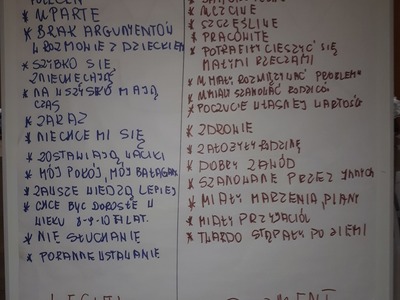 * UPARTE
* BRAK ARGUMENTÓW
W ROZMOWIE Z DZIECKIEM
* SZYBKO SIĘ
ZNIECHĘCAJĄ
* NA WSZYSKO MAJĄ
CZAS
* ZARAZ
* NIECHCE MI SIĘ
* ZOSTAWIAJĄ
* MÓJ POKÓJ, MÓJ BAŁAGAN
* ZAWSZE WIEDZĄ LEPIEJ
* CHCE BYĆ DOROSŁE W
WIEKU 8-9-10 LAT.
* NIE SŁUCHANIE
* PORANNE WSTAWANIE
* UCZCIWE
* SZCZĘŚLIWE
* PRACOWITE
* POTRAFIŁY CIESZYĆ SIĘ
MAŁYMI RZECZAMI
* UMIAŁY ROZWIĄZYWAĆ PROBLEMY
* UMIAŁY SZANOWAĆ RODZICÓW
* POCZUCIE WŁASNEJ WARTOŚCI
* ZDROWIE
* ZAŁOŻYŁY RODZINĘ
* DOBRY ZAWÓD
* SZANOWANE PRZEZ INNYCH
* MIAŁY MARZENIA, PLANY
* MIAŁY PRZYJACIÓŁ
* TWARDO STĄPAŁY PO ZIEMI